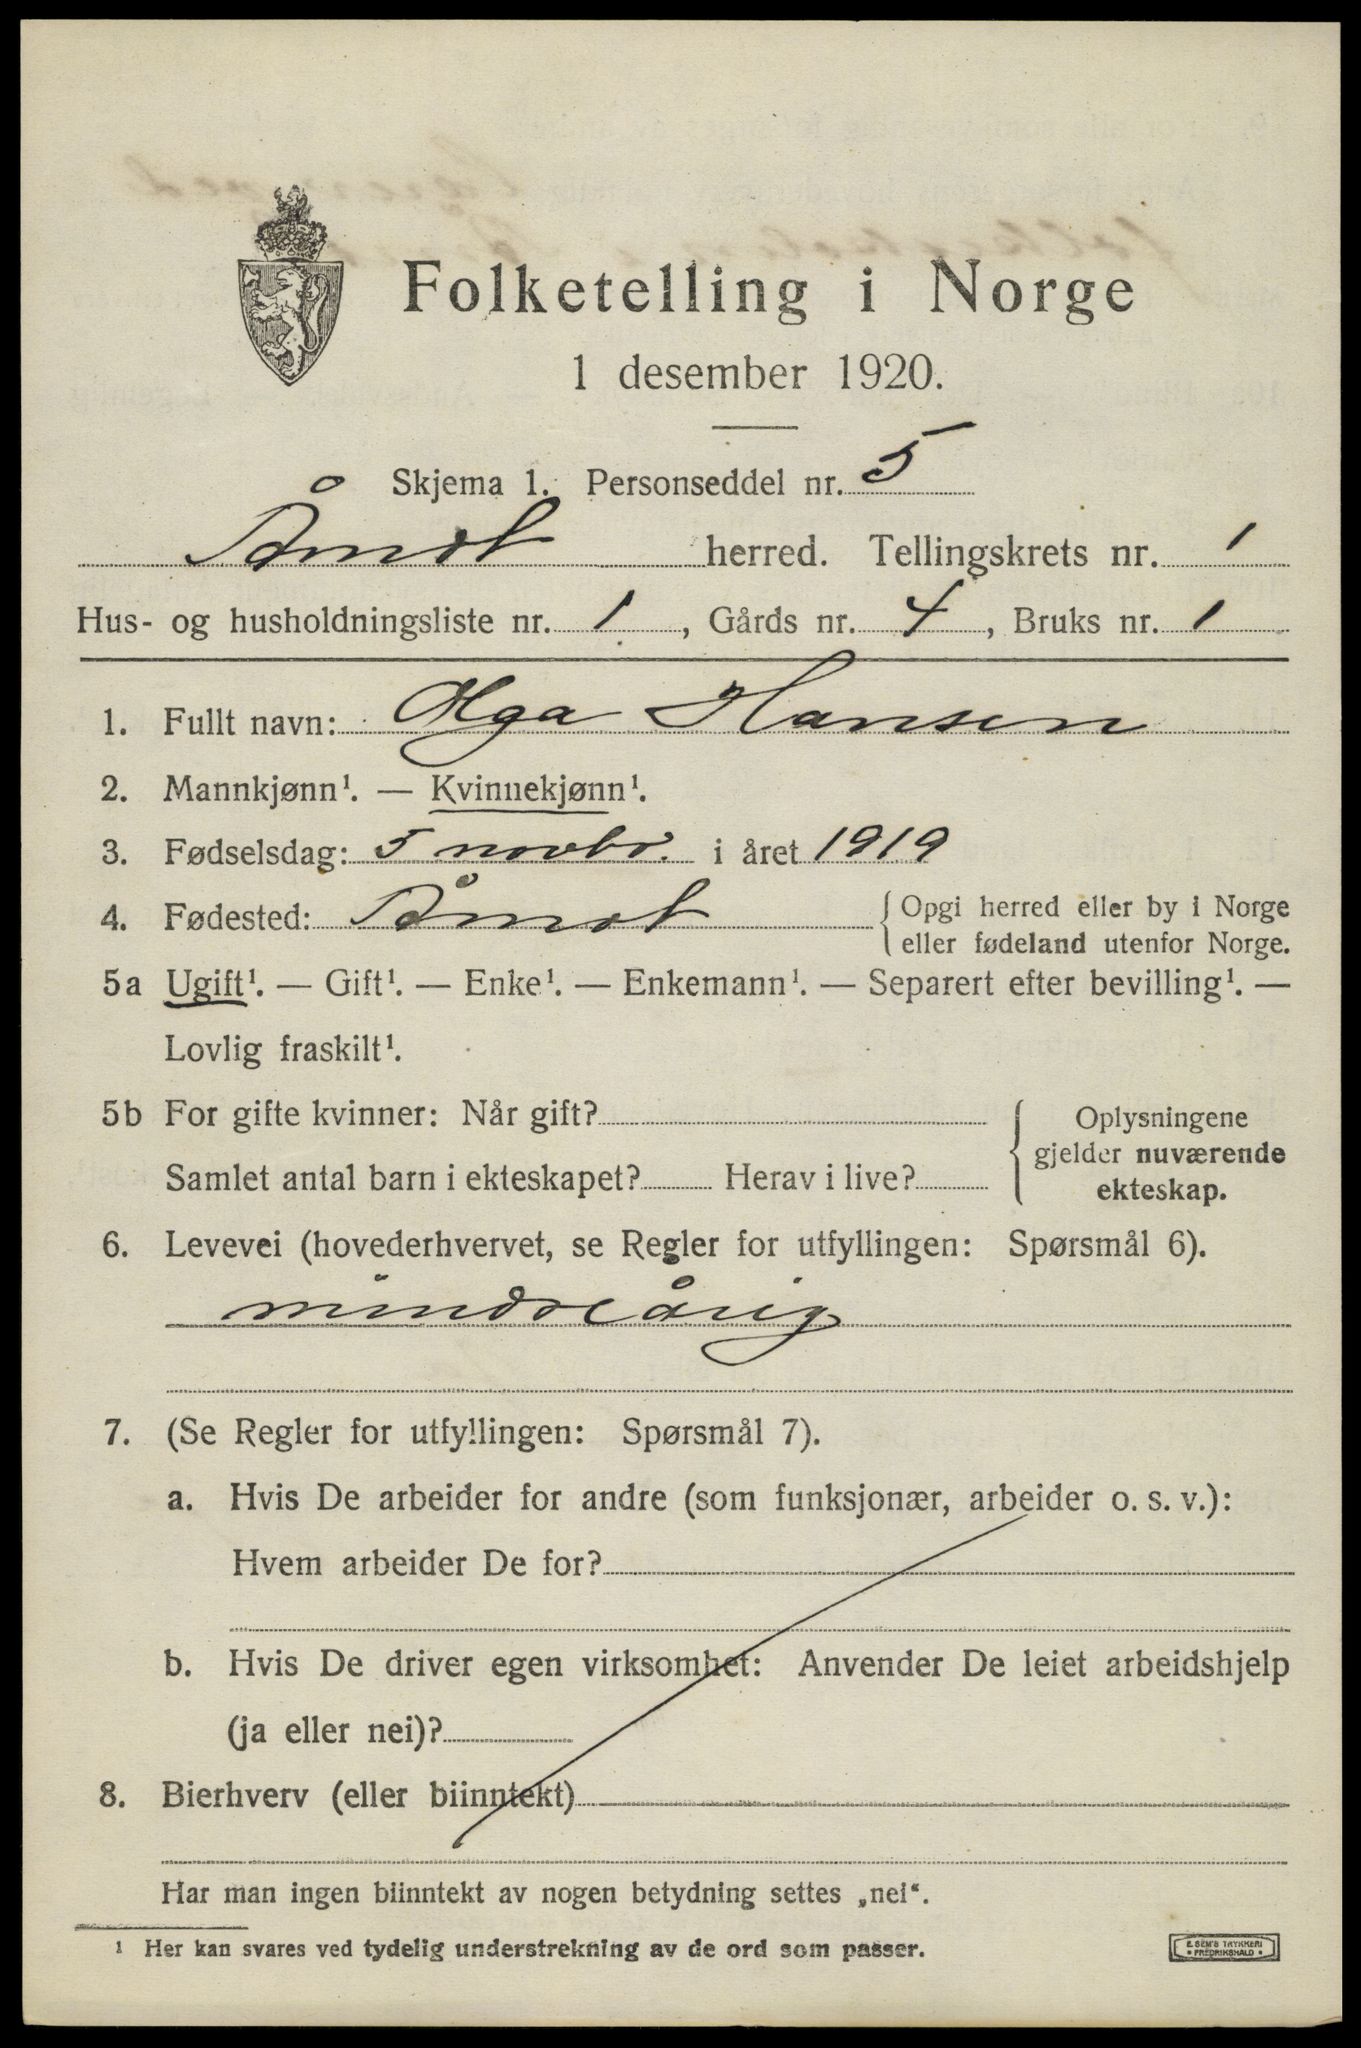 Folketelling i Norge
1 desember 1920.
Skjema 1. Personseddel nr. 5
Åmot herred. Tellingskrets nr. 1
Hus- og husholdningsliste nr. 1, Gårds nr. 4, Bruks nr. 1
1. Fullt navn: Olga Hansen
2. Mannkjønn¹. — Kvinnekjønn¹.
3. Fødselsdag: 5 novbr. i året 1919
4. Fødested: Åmot { Opgi herred eller by i Norge
eller fødeland utenfor Norge.
5a Ugift¹. — Gift¹. — Enke¹. — Enkemann¹. — Separert efter bevilling¹. —
Lovlig fraskilt¹.
5b For gifte kvinner: Når gift?
Samlet antal barn i ekteskapet? Herav i live?
{ Oplysningene
gjelder nuværende
ekteskap.
6. Levevei (hovederhvervet, se Regler for utfyllingen: Spørsmål 6).
mindreårig
7. (Se Regler for utfyllingen: Spørsmål 7).
a. Hvis De arbeider for andre (som funksjonær, arbeider o. s. v.):
Hvem arbeider De for?
b. Hvis De driver egen virksomhet: Anvender De leiet arbeidshjelp
(ja eller nei)?
8. Bierhverv (eller biinntekt)
Har man ingen biinntekt av nogen betydning settes „nei“.
¹ Her kan svares ved tydelig understrekning av de ord som passer.
E. SEM'S TRYKKERI
• FREDRIKSHALD •